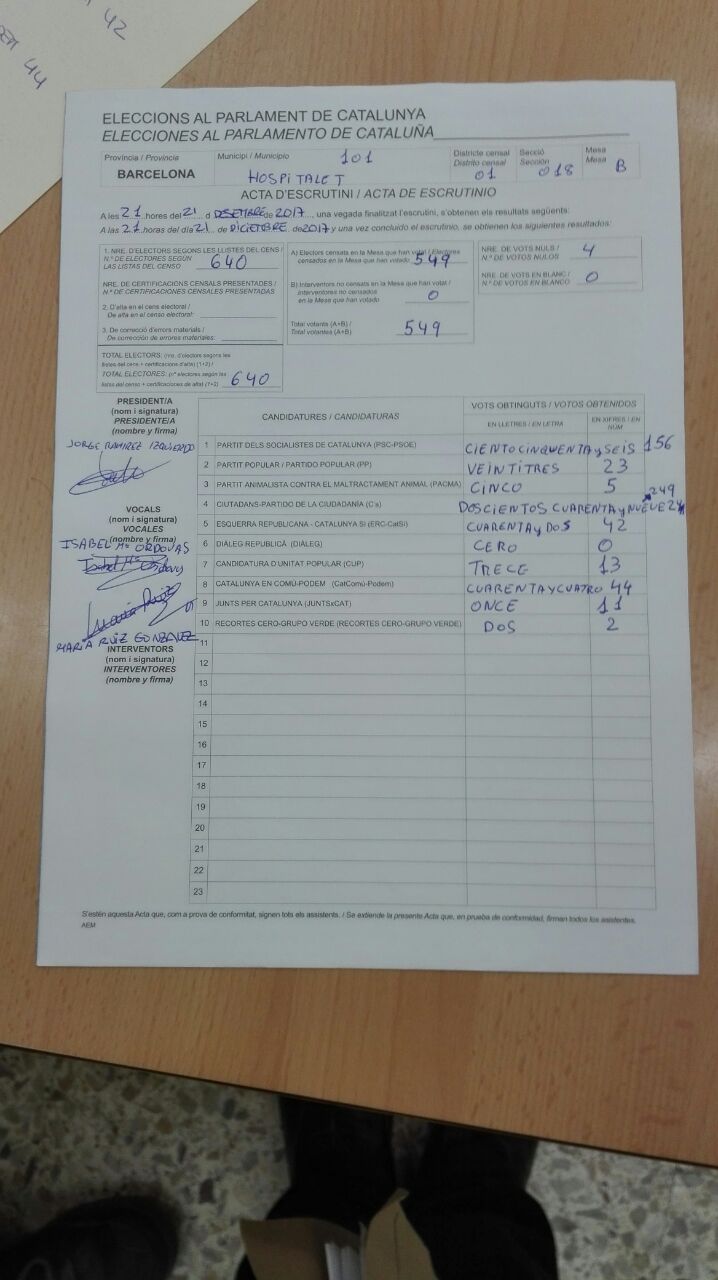 42
44
ELECCIONS AL PARLAMENT DE CATALUNYA
ELECCIONES AL PARLAMENTO DE CATALUÑA
Província / Provincia
BARCELONA
Municipi / Municipio 101
HOSPITALET
Districte censal
Distrito censal
01
Secció
Sección 018
Mesa
Mesa B
ACTA D'ESCRUTINI / ACTA DE ESCRUTINIO
A les 21 hores del 21 d DESEMBRE de 2017, una vegada finalitzat l'escrutini, s'obtenen els resultats següents:
A las 21 horas del día 21 de DICIEMBRE de 2017 y una vez concluido el escrutinio, se obtienen los siguientes resultados:
1. NRE. D'ELECTORS SEGONS LES LLISTES DEL CENS /
N.º DE ELECTORES SEGÚN
LAS LISTAS DEL CENSO 640
NRE. DE CERTIFICACIONS CENSALS PRESENTADES /
N.º DE CERTIFICACIONES CENSALES PRESENTADAS
2. D'alta en el cens electoral /
De alta en el censo electoral:
3. De correcció d'errors materials /
De corrección de errores materiales:
TOTAL ELECTORS: (nre. d'electors segons les
llistes del cens + certificacions d'alta) (1+2) /
TOTAL ELECTORES: (nº electores según las
listas del censo + certificaciones de alta) (1+2) 640
A) Electors censats en la Mesa que han votat / Electores
censados en la Mesa que han votado 549
B) Interventors no censats en la Mesa que han votat /
Interventores no censados
en la Mesa que han votado 0
Total votants (A+B) /
Total votantes (A+B) 549
NRE. DE VOTS NULS /
N.º DE VOTOS NULOS 4
NRE. DE VOTS EN BLANC /
N.º DE VOTOS EN BLANCO 0
PRESIDENT/A
(nom i signatura)
PRESIDENTE/A
(nombre y firma)
JORGE RAMIREZ IZQUIERDO
VOCALS
(nom i signatura)
VOCALES
(nombre y firma)
ISABEL Mª ORDOVAS
MARIA RUIZ GONZALEZ
INTERVENTORS
(nom i signatura)
INTERVENTORES
(nombre y firma)
CANDIDATURES / CANDIDATURAS
VOTS OBTINGUTS / VOTOS OBTENIDOS
EN LLETRES / EN LETRA
EN XIFRES / EN NÚM
1 PARTIT DELS SOCIALISTES DE CATALUNYA (PSC-PSOE) CIENTO CINQUENTA y SEIS 156
2 PARTIT POPULAR / PARTIDO POPULAR (PP) VEINTITRES 23
3 PARTIT ANIMALISTA CONTRA EL MALTRACTAMENT ANIMAL (PACMA) CINCO 5
249
4 CIUTADANS-PARTIDO DE LA CIUDADANÍA (C's) DOSCIENTOS CUARENTA y NUEVE
5 ESQUERRA REPUBLICANA - CATALUNYA SÍ (ERC-CatSí) CUARENTA y DOS 42
6 DIÀLEG REPUBLICÀ (DIÀLEG) CERO 0
7 CANDIDATURA D'UNITAT POPULAR (CUP) TRECE 13
8 CATALUNYA EN COMÚ-PODEM (CatComú-Podem) CUARENTA y CUATRO 44
9 JUNTS PER CATALUNYA (JUNTSxCAT) ONCE 11
10 RECORTES CERO-GRUPO VERDE (RECORTES CERO-GRUPO VERDE) DOS 2
11
12
13
14
15
16
17
18
19
20
21
22
23
S'estén aquesta Acta que, com a prova de conformitat, signen tots els assistents. / Se extiende la presente Acta que, en prueba de conformidad, firman todos los asistentes.
AEM